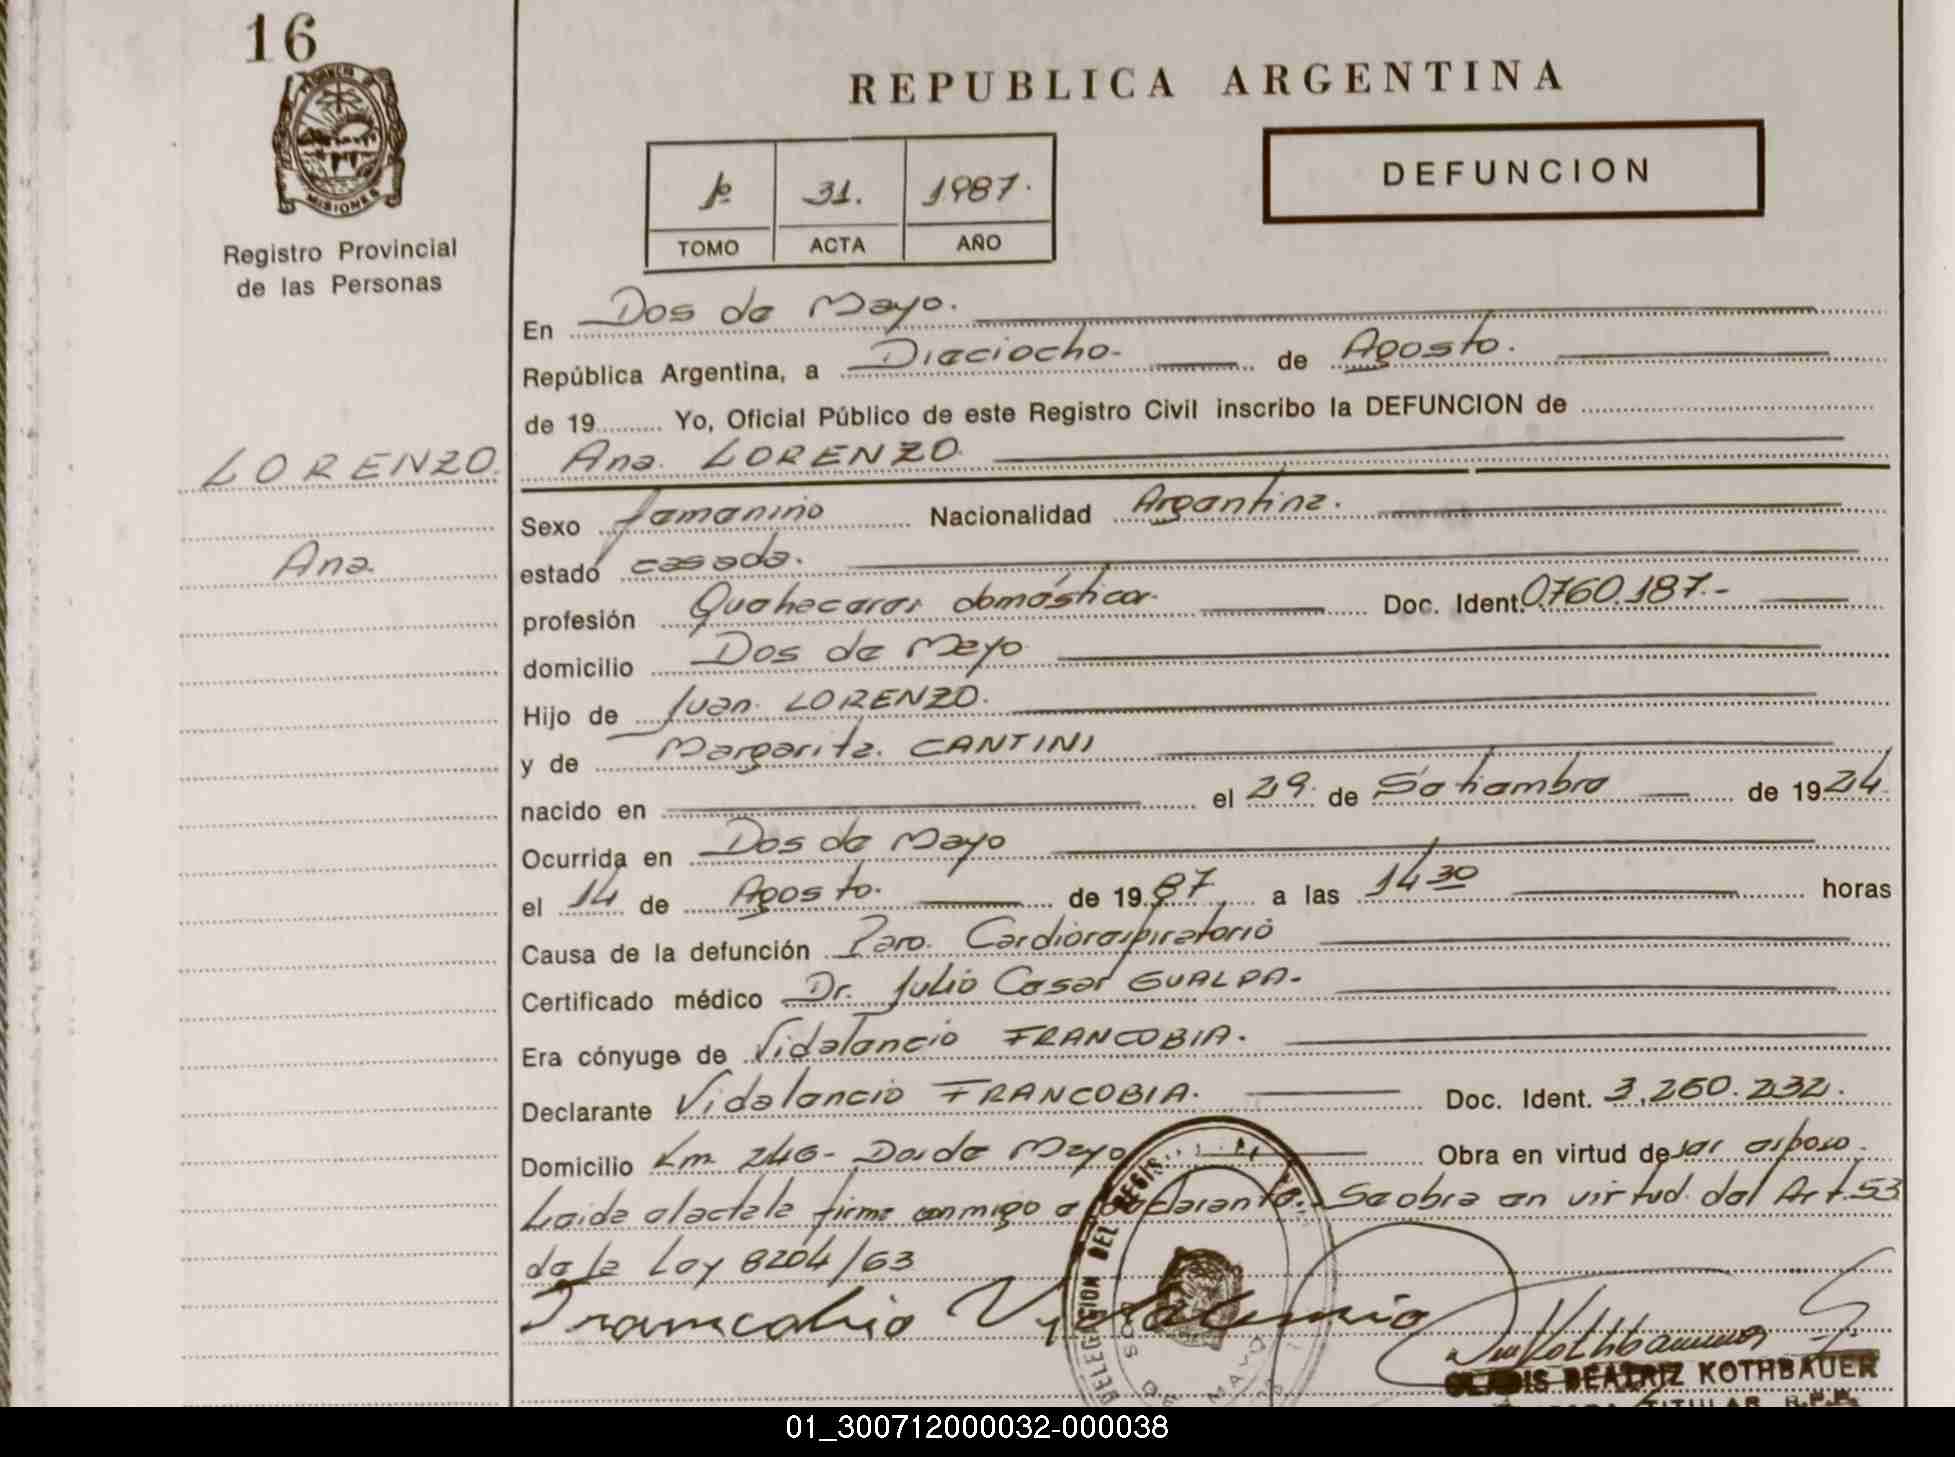 16
PROVINCIA DE
MISIONES
Registro Provincial
de las Personas
REPUBLICA ARGENTINA
1º 31. 1987.
TOMO ACTA AÑO
DEFUNCION
En Dos de Mayo.
República Argentina, a Dieciocho. de Agosto.
de 19 Yo, Oficial Público de este Registro Civil inscribo la DEFUNCION de
LORENZO. Ana LORENZO.
Ana.
Sexo femenino Nacionalidad Argentina.
estado casada.
profesión Quehaceres domésticos. Doc. Ident. 0760.187.-
domicilio Dos de Mayo
Hijo de Juan LORENZO.
y de Margarita CANTINI
nacido en el 29 de Setiembre de 1924.
Ocurrida en Dos de Mayo
el 14 de Agosto. de 1987 a las 14 30 horas
Causa de la defunción Paro Cardiorespiratorio
Certificado médico Dr. Julio Cesar GUALPA.
Era cónyuge de Vidalencio FRANCOBIA.
Declarante Vidalencio FRANCOBIA. Doc. Ident. 3.260.232.
Domicilio Km 246- Dos de Mayo Obra en virtud de ser esposo.
Leida el acta la firma conmigo el declarante.- Se obra en virtud del Art. 53
de la Ley 8204/63
DELEGACION DEL REGIS
DOS DE MAYO
Kothbauer
GLADIS BEATRIZ KOTHBAUER
TITULAR R.P.P.
01_300712000032-000038